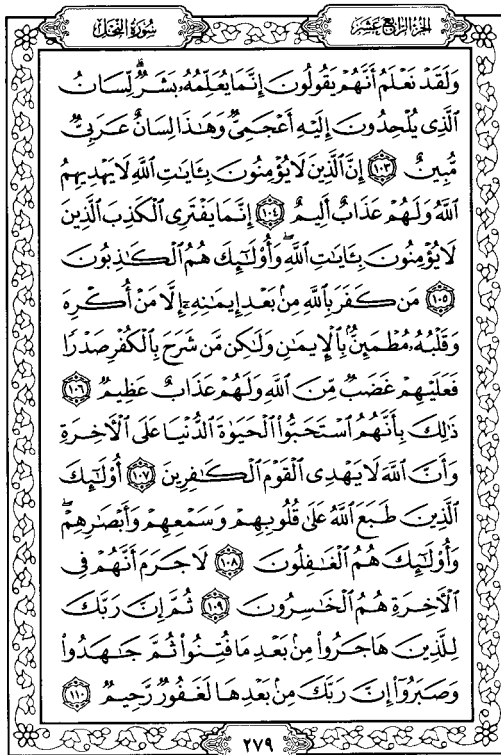 سُورَةُ النَّحْلِ
الجُزْءُ الرَّابِعَ عَشَرَ
وَلَقَدْ نَعْلَمُ أَنَّهُمْ يَقُولُونَ إِنَّمَا يُعَلِّمُهُۥ بَشَرٌۗ لِّسَانُ
ٱلَّذِى يُلْحِدُونَ إِلَيْهِ أَعْجَمِىٌّ وَهَٰذَا لِسَانٌ عَرَبِىٌّ
مُّبِينٌ ١٠٣ إِنَّ ٱلَّذِينَ لَا يُؤْمِنُونَ بِـَٔايَٰتِ ٱللَّهِ لَا يَهْدِيهِمُ
ٱللَّهُ وَلَهُمْ عَذَابٌ أَلِيمٌ ١٠٤ إِنَّمَا يَفْتَرِى ٱلْكَذِبَ ٱلَّذِينَ
لَا يُؤْمِنُونَ بِـَٔايَٰتِ ٱللَّهِۖ وَأُو۟لَٰٓئِكَ هُمُ ٱلْكَٰذِبُونَ
١٠٥ مَن كَفَرَ بِٱللَّهِ مِنۢ بَعْدِ إِيمَٰنِهِۦٓ إِلَّا مَنْ أُكْرِهَ
وَقَلْبُهُۥ مُطْمَئِنٌّۢ بِٱلْإِيمَٰنِ وَلَٰكِن مَّن شَرَحَ بِٱلْكُفْرِ صَدْرًا
فَعَلَيْهِمْ غَضَبٌ مِّنَ ٱللَّهِ وَلَهُمْ عَذَابٌ عَظِيمٌ ١٠٦
ذَٰلِكَ بِأَنَّهُمُ ٱسْتَحَبُّوا۟ ٱلْحَيَوٰةَ ٱلدُّنْيَا عَلَى ٱلْـَٔاخِرَةِ
وَأَنَّ ٱللَّهَ لَا يَهْدِى ٱلْقَوْمَ ٱلْكَٰفِرِينَ ١٠٧ أُو۟لَٰٓئِكَ
ٱلَّذِينَ طَبَعَ ٱللَّهُ عَلَىٰ قُلُوبِهِمْ وَسَمْعِهِمْ وَأَبْصَٰرِهِمْۖ
وَأُو۟لَٰٓئِكَ هُمُ ٱلْغَٰفِلُونَ ١٠٨ لَا جَرَمَ أَنَّهُمْ فِى
ٱلْـَٔاخِرَةِ هُمُ ٱلْخَٰسِرُونَ ١٠٩ ثُمَّ إِنَّ رَبَّكَ
لِلَّذِينَ هَاجَرُوا۟ مِنۢ بَعْدِ مَا فُتِنُوا۟ ثُمَّ جَٰهَدُوا۟
وَصَبَرُوٓا۟ إِنَّ رَبَّكَ مِنۢ بَعْدِهَا لَغَفُورٌ رَّحِيمٌ ١١٠
٢٧٩